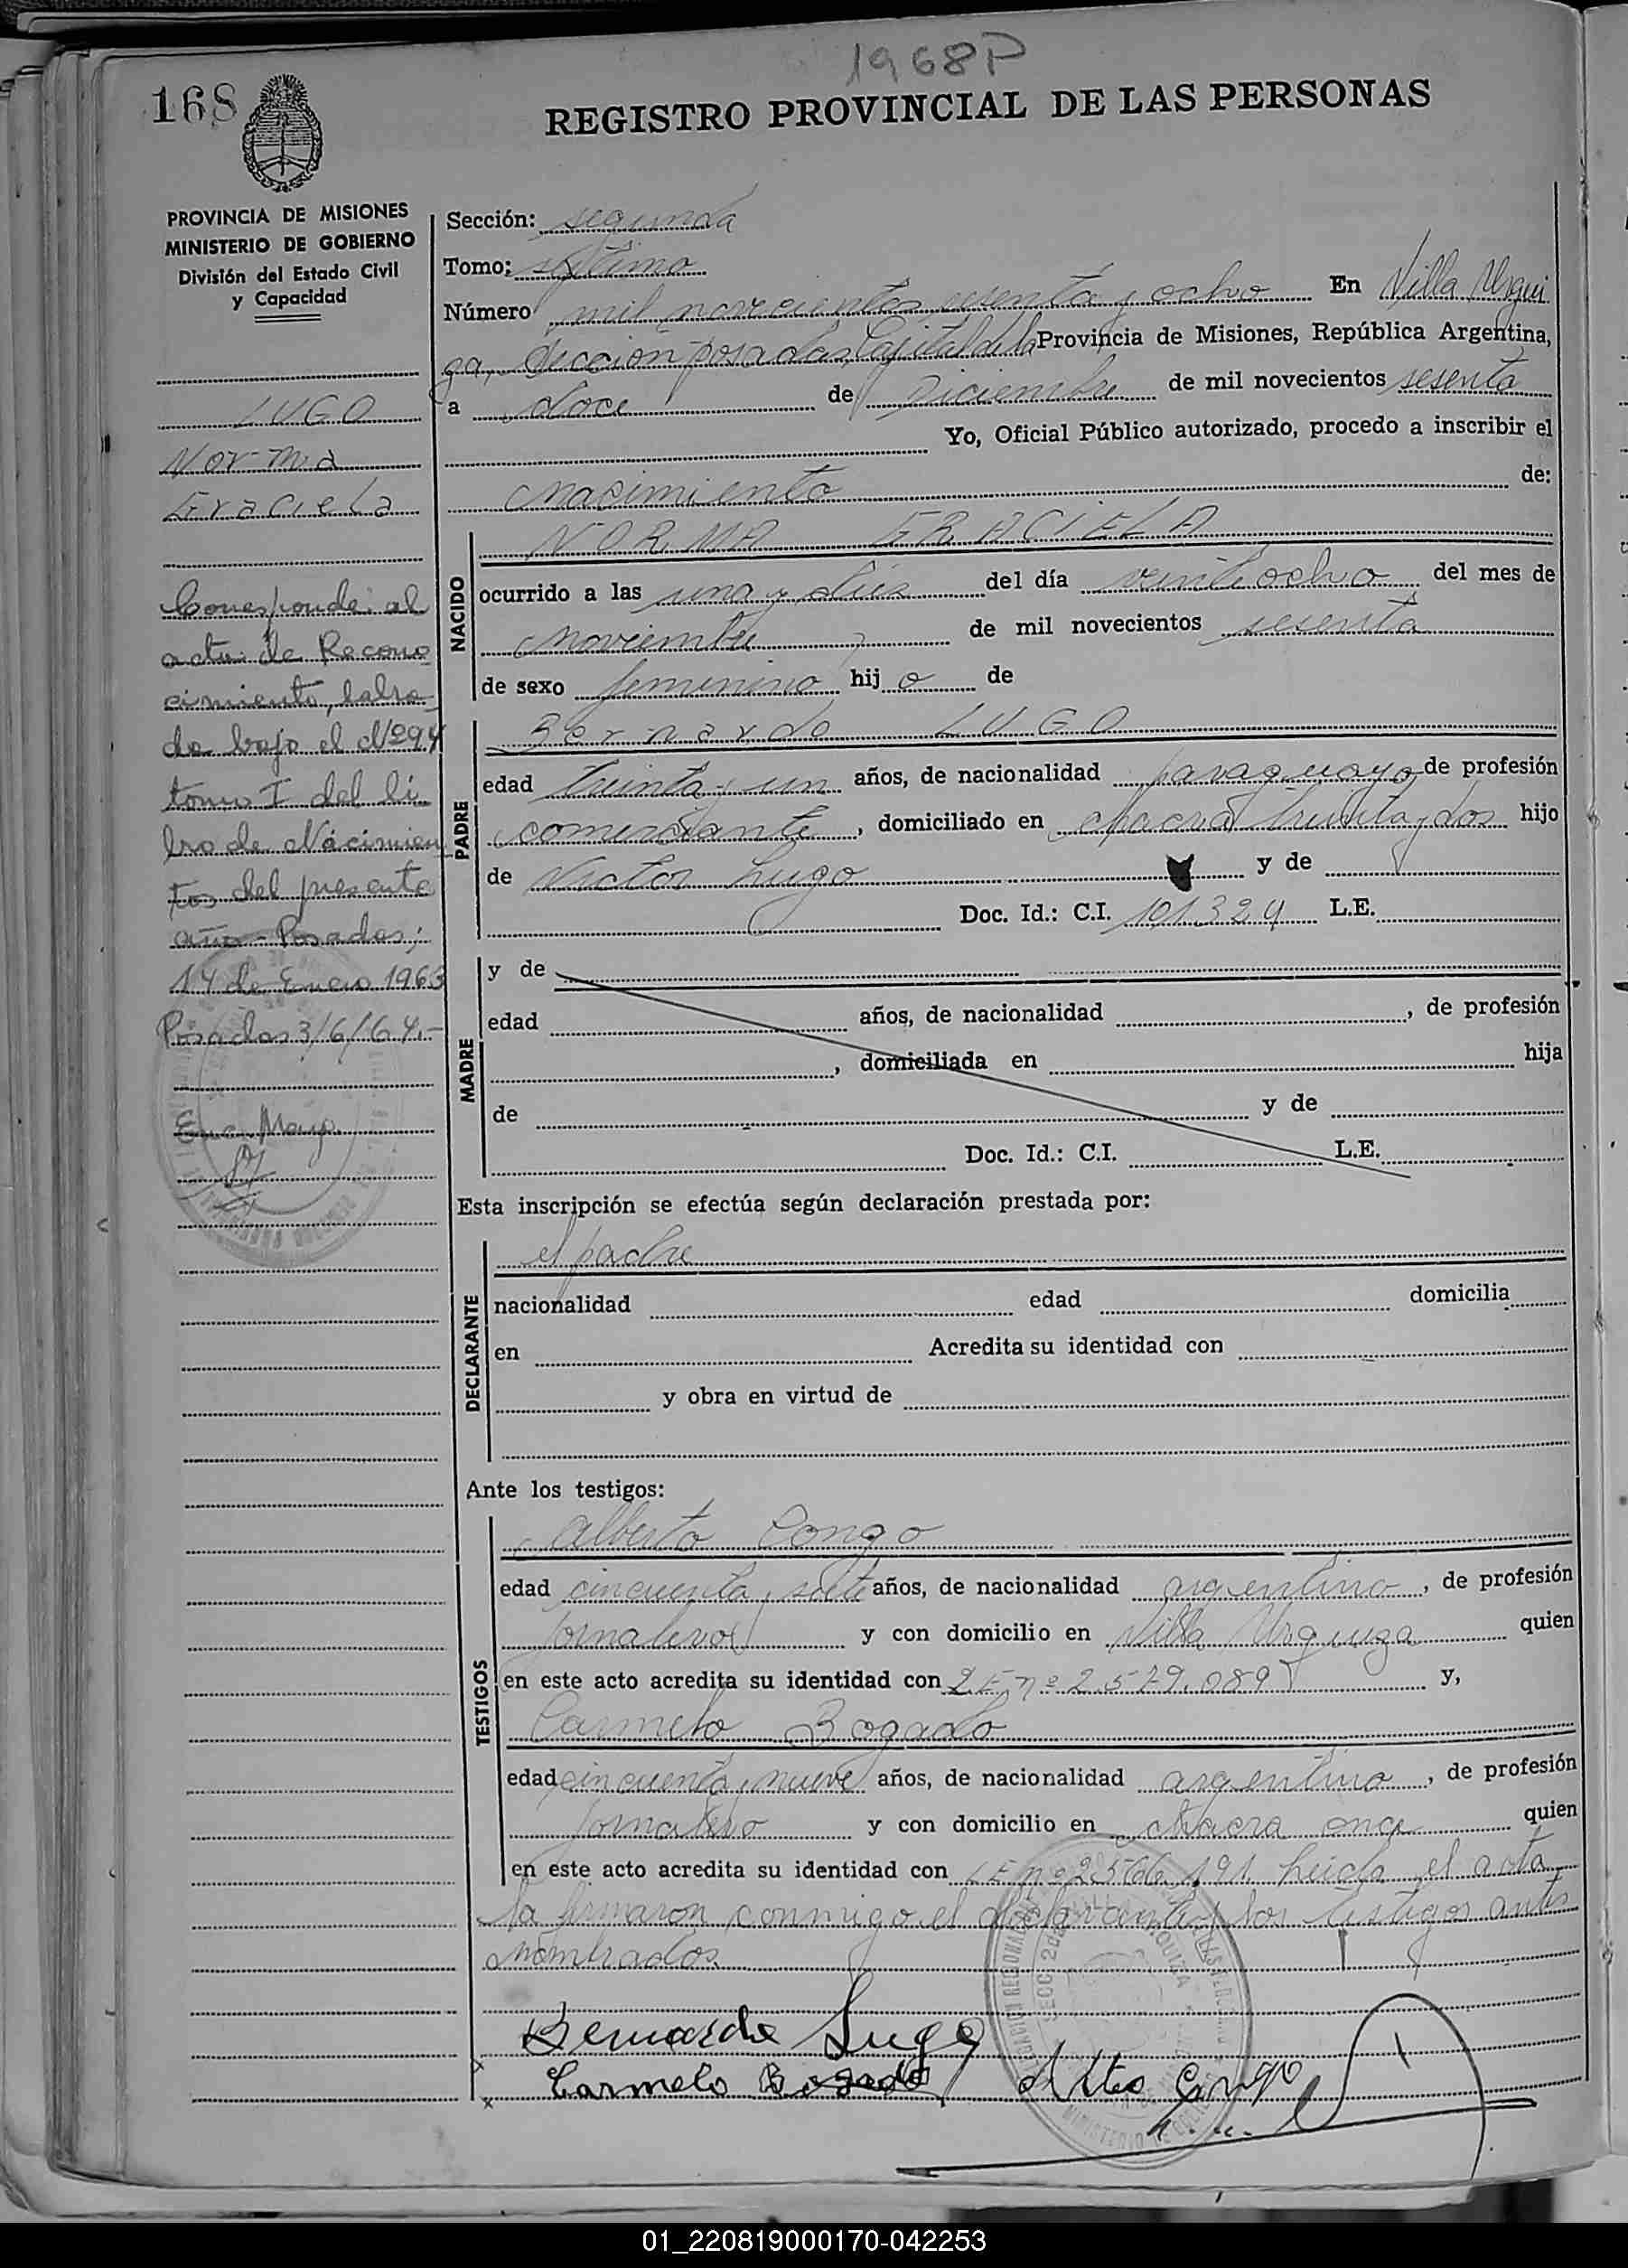 1968P
168
REGISTRO PROVINCIAL DE LAS PERSONAS
PROVINCIA DE MISIONES
MINISTERIO DE GOBIERNO
División del Estado Civil
y Capacidad
LUGO
Norma
Graciela
Corresponde al
acta de Recono
cimiento, labra
da bajo el Nº 294
tomo I del li
bro de Nacimien
tos del presente
año - Posadas,
14 de Enero 1963
Posadas 3/6/64.-
Sección: segunda
Tomo: septimo
Número mil novecientos sesenta y ocho En Villa Urqui
za, Sección Posadas, Capital de la Provincia de Misiones, República Argentina,
a doce de Diciembre de mil novecientos sesenta
Yo, Oficial Público autorizado, procedo a inscribir el
nacimiento de:
NACIDO
NORMA GRACIELA
ocurrido a las una y diez del día veintiocho del mes de
noviembre de mil novecientos sesenta
de sexo femenino hij a de
PADRE
Bernardo LUGO
edad treinta y un años, de nacionalidad paraguayo de profesión
comerciante, domiciliado en chacra treinta y dos hijo
de Victor Lugo y de
Doc. Id.: C.I. 101.324 L.E.
MADRE
y de
edad años, de nacionalidad , de profesión
, domiciliada en hija
de y de
Doc. Id.: C.I. L.E.
Esta inscripción se efectúa según declaración prestada por:
DECLARANTE
el padre
nacionalidad edad domicilia
en Acredita su identidad con
y obra en virtud de
Ante los testigos:
TESTIGOS
Alberto Congo
edad cincuenta y siete años, de nacionalidad argentino, de profesión
jornalero y con domicilio en Villa Urquiza quien
en este acto acredita su identidad con L E nº 2.579.089 y,
Carmelo Bogado
edad cincuenta y nueve años, de nacionalidad argentino, de profesión
jornalero y con domicilio en chacra once quien
en este acto acredita su identidad con L E nº 2.566.191. Leida el acta
la firmaron conmigo el declarante y los testigos antes
nombrados.
Bernardo Lugo
Carmelo Bogado
01_220819000170-042253